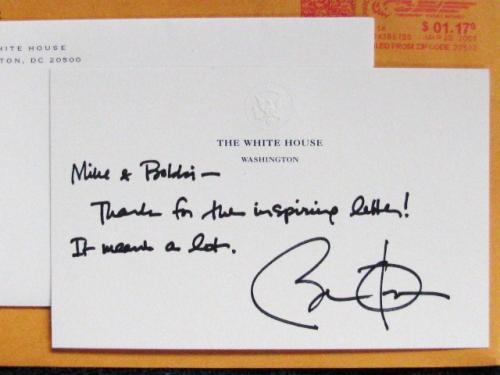 HITE HOUSE
TON, DC 20500
$ 01.17⁰
MAILED FROM ZIP CODE
THE WHITE HOUSE
WASHINGTON
Mike & Bobbi —
Thanks for the inspiring letter!
It means a lot.